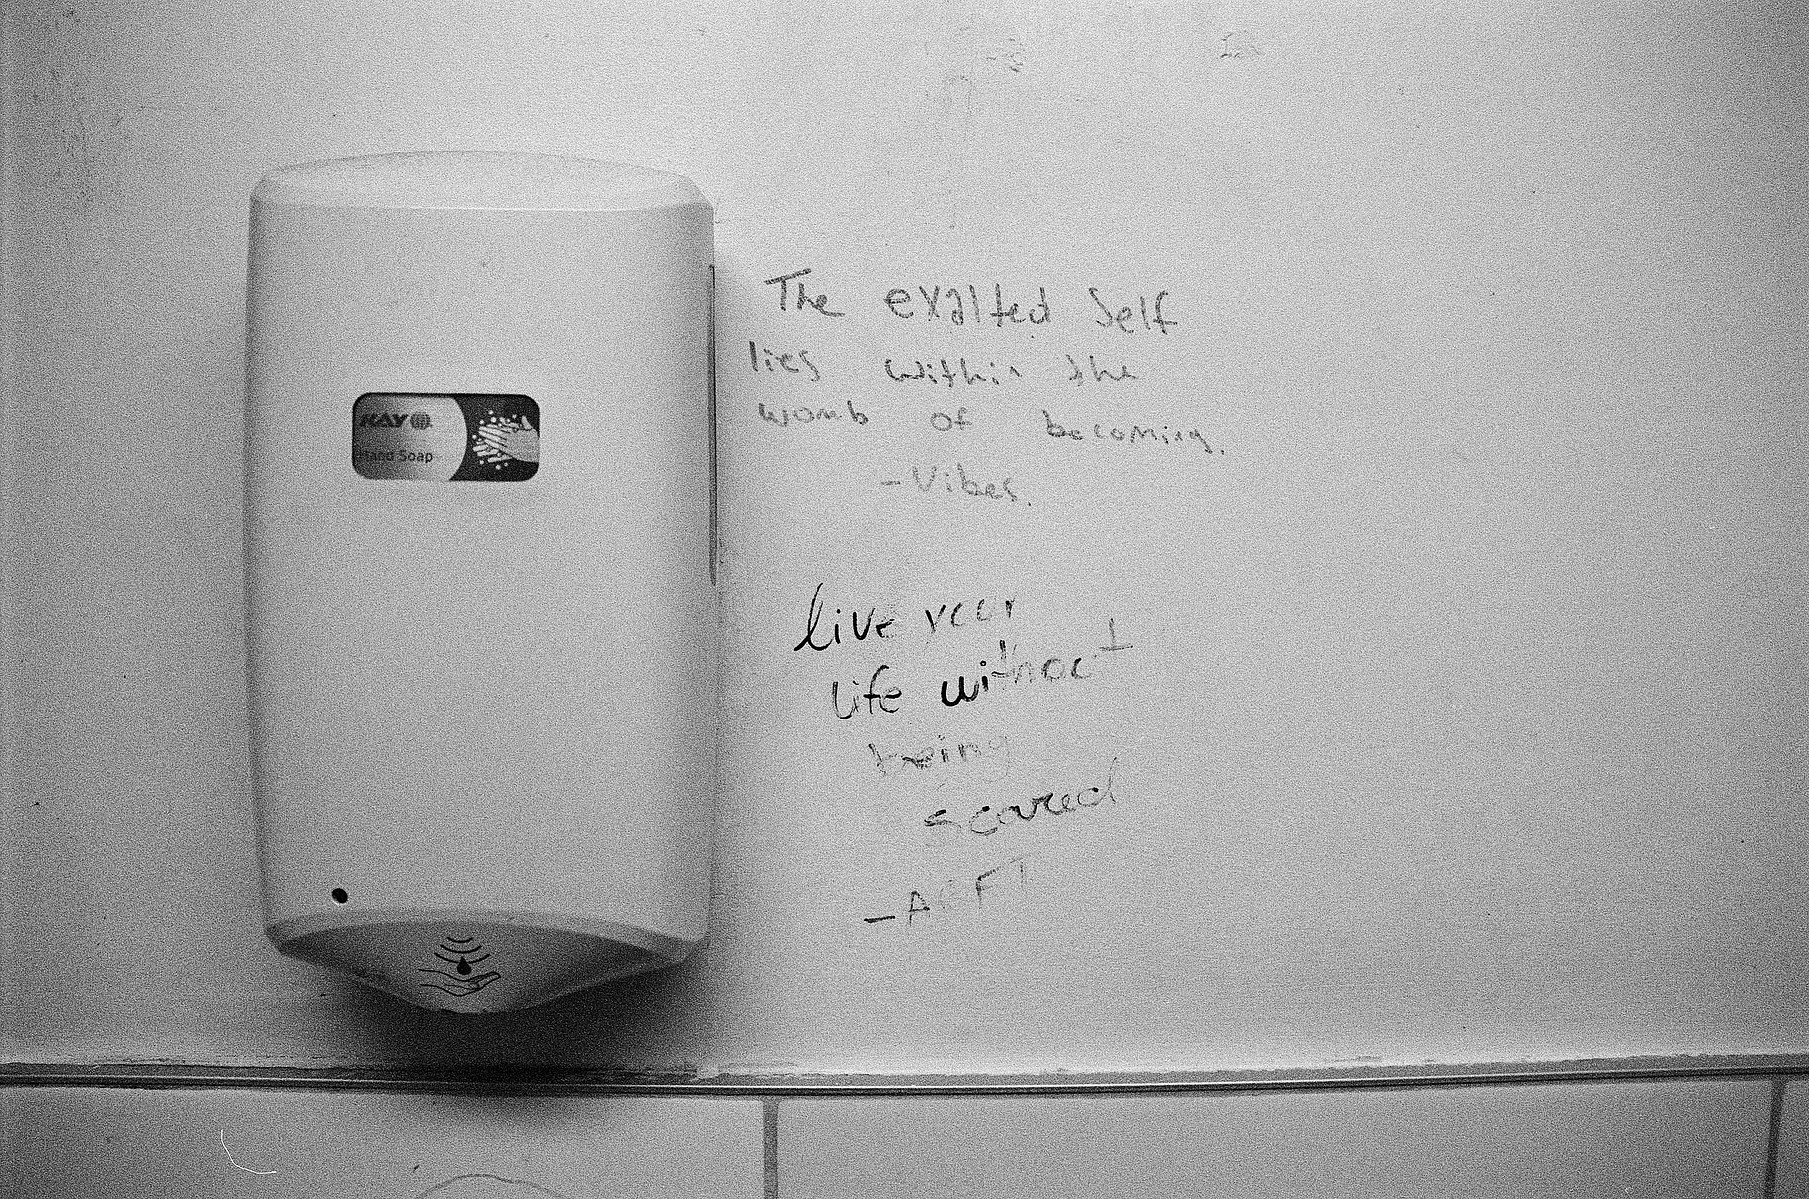 KAY
Hand Soap
The exalted Self
lies within the
womb of becoming.
-Vibes.
live your
life without
being
scared